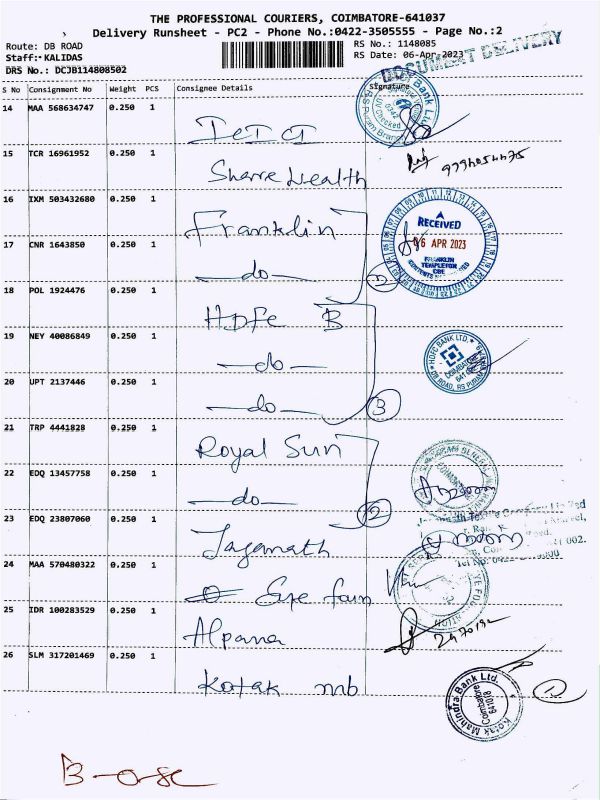 THE PROFESSIONAL COURIERS, COIMBATORE-641037
Delivery Runsheet - PC2 - Phone No.:0422-3505555 - Page No.:2
Route: DB ROAD
RS No.: 1148085
Staff: KALIDAS
RS Date: 06-Apr-2023
DRS No.: DCJB114808502
DOCUMENT DELIVERY
S No Consignment No Weight PCS Consignee Details Signature
14 MAA 568634747 0.250 1
15 TCR 16961952 0.250 1 Sharre Wealth
16 IXM 503432680 0.250 1 Franklin
RECEIVED
06 APR 2023
FRANKLIN
TEMPLETON
CBE
17 CNR 1643850 0.250 1 -do- 2
18 POL 1924476 0.250 1 HDFC B
19 NEY 40086849 0.250 1 -do-
HDFC BANK LTD.
20 UPT 2137446 0.250 1 -do- 3
21 TRP 4441828 0.250 1 Royal Sun
22 EDQ 13457758 0.250 1 -do- 2
23 EDQ 23807060 0.250 1 Jaganath
24 MAA 570480322 0.250 1 Eye foun
25 IDR 100283529 0.250 1 Alpana
26 SLM 317201469 0.250 1 Kotak mb 1
Kotak Mahindra Bank Ltd.
Coimbatore
641018